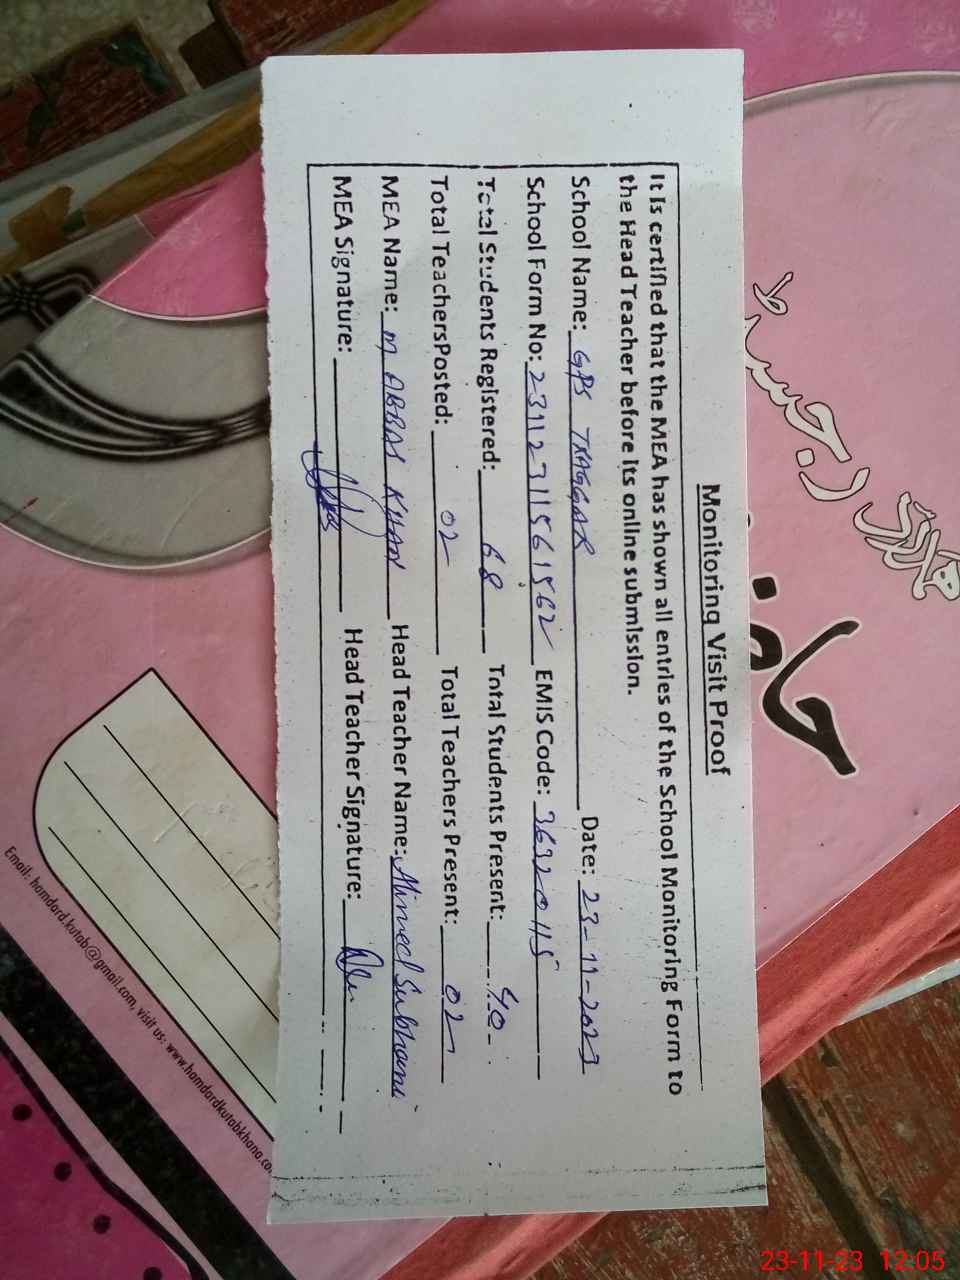 Monitoring Visit Proof
It is certified that the MEA has shown all entries of the School Monitoring Form to
the Head Teacher before its online submission.
School Name: GPS TRAGGAR Date: 23-11-2023
School Form No: 23112311561562 EMIS Code: 36320115
Total Students Registered: 68 Total Students Present: 40
Total TeachersPosted: 02 Total Teachers Present: 02
MEA Name: M ABBAS KHAN Head Teacher Name: Ahmed Subhani
MEA Signature: Head Teacher Signature:
ہمدرد
رجسٹر
Email: hamdard.kutab@gmail.com, visit us: www.hamdardkutabkhana.co
23-11-23 12:05